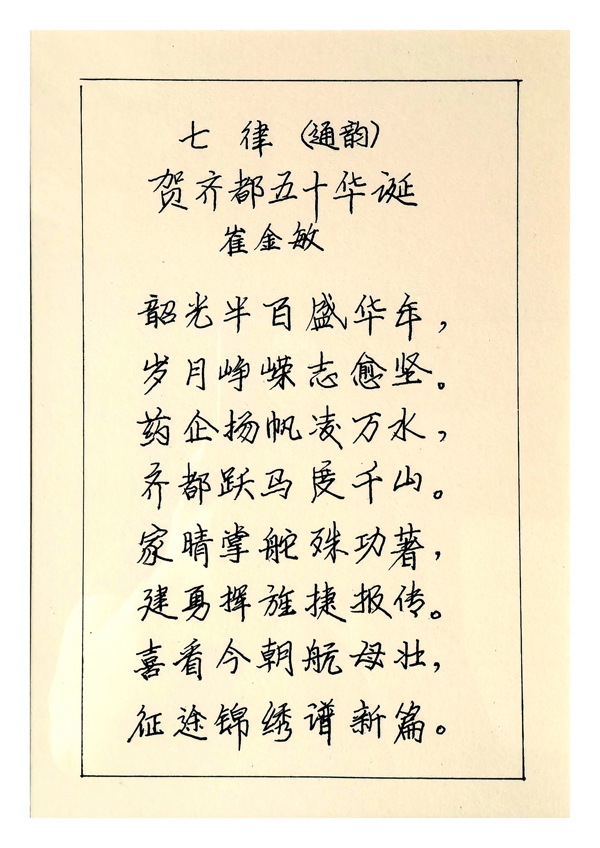 七律（通韵）
贺齐都五十华诞
崔金敏
韶光半百盛华年，
岁月峥嵘志愈坚。
药企扬帆凌万水，
齐都跃马度千山。
家晴掌舵殊功著，
建勇挥旌捷报传。
喜看今朝航母壮，
征途锦绣谱新篇。